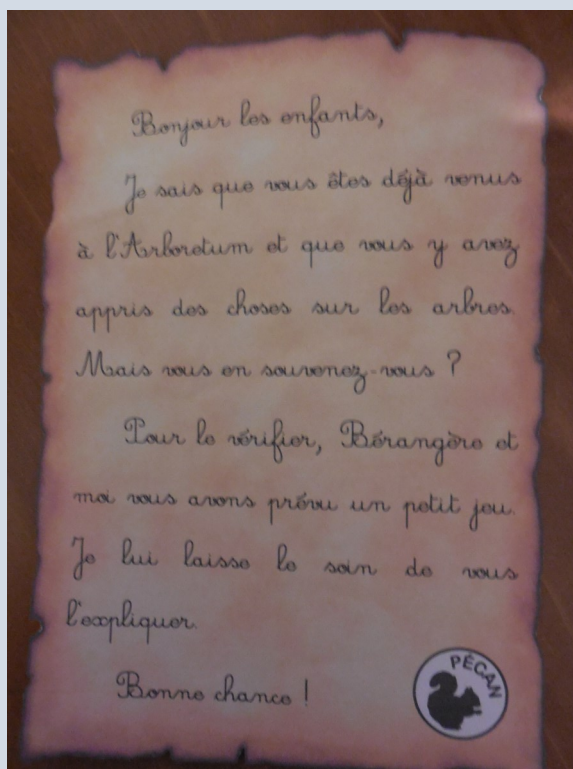 Bonjour les enfants,
Je sais que vous êtes déjà venus
à l'Arboretum et que vous y avez
appris des choses sur les arbres.
Mais vous en souvenez-vous ?
Pour le vérifier, Bérangère et
moi vous avons prévu un petit jeu.
Je lui laisse le soin de vous
l'expliquer.
Bonne chance !
PÉCAN